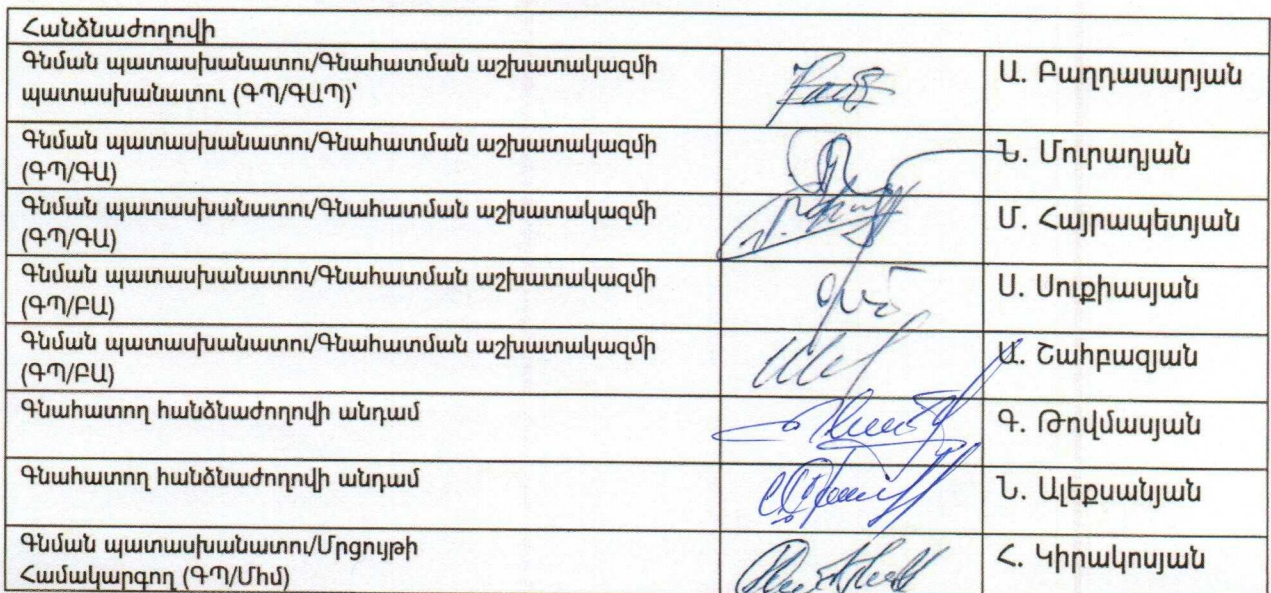 Հանձնաժողովի
Գնման պատասխանատու/Գնահատման աշխատակազմի
պատասխանատու (ԳՊ/ԳԱՊ)՝
Ա. Բաղդասարյան
Գնման պատասխանատու/Գնահատման աշխատակազմի
(ԳՊ/ԳԱ)
Ն. Մուրադյան
Գնման պատասխանատու/Գնահատման աշխատակազմի
(ԳՊ/ԳԱ)
Մ. Հայրապետյան
Գնման պատասխանատու/Գնահատման աշխատակազմի
(ԳՊ/ԲԱ)
Ս. Սուքիասյան
Գնման պատասխանատու/Գնահատման աշխատակազմի
(ԳՊ/ԲԱ)
Ա. Շահբազյան
Գնահատող հանձնաժողովի անդամ
Գ. Թովմասյան
Գնահատող հանձնաժողովի անդամ
Ն. Ալեքսանյան
Գնման պատասխանատու/Մրցույթի
Համակարգող (ԳՊ/Մհմ)
Հ. Կիրակոսյան